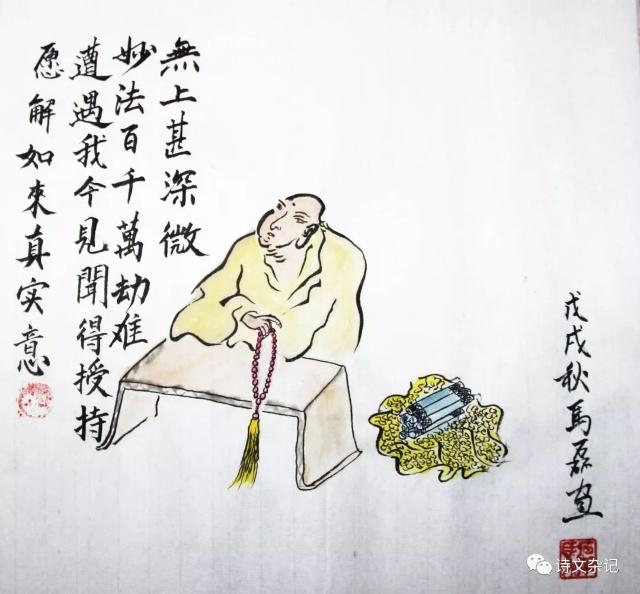 無上甚深微
妙法百千萬劫难
遭遇我今見聞得授持
愿解如來真实意
戊戌秋馬磊画
诗文杂记